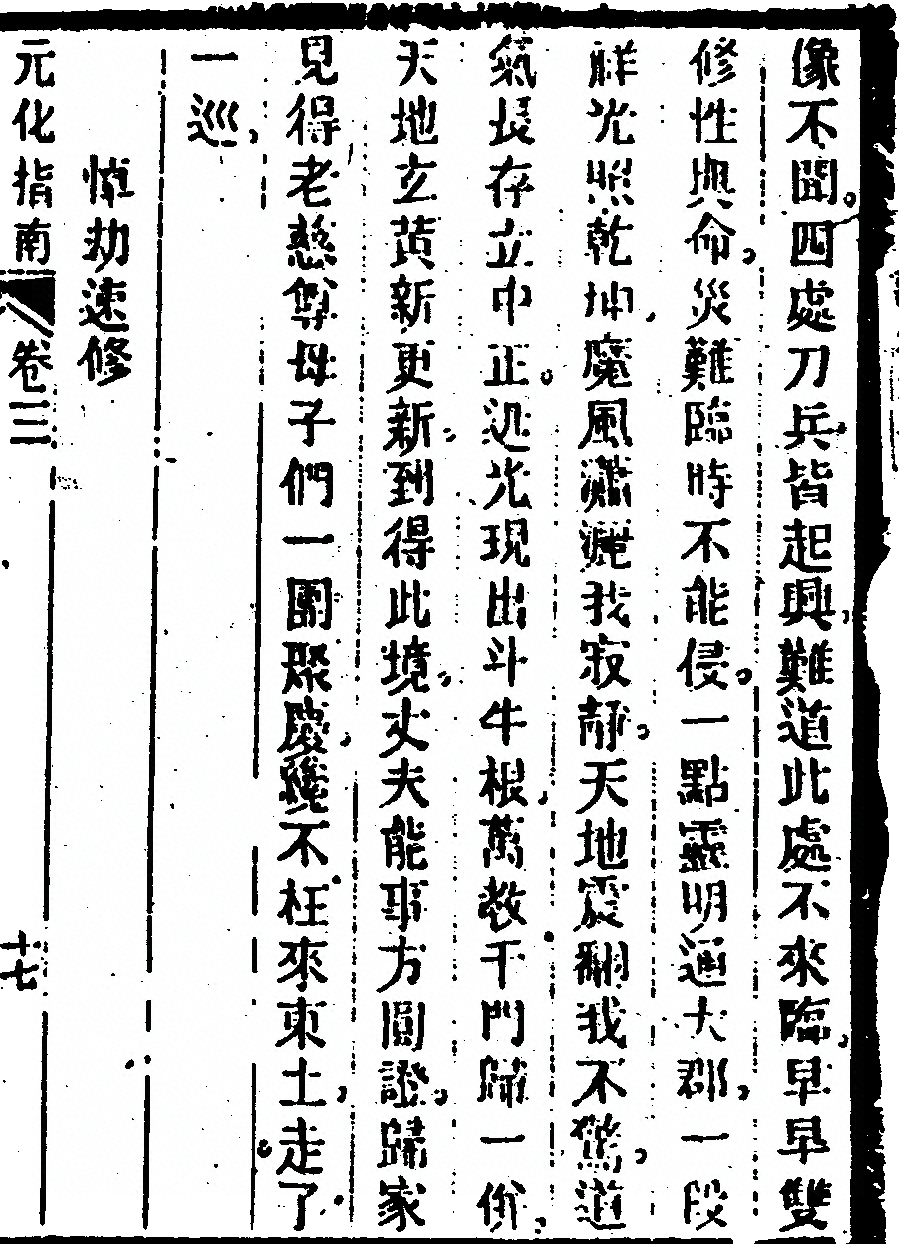 像不聞四處刀兵皆起興難道此處不來臨早早雙
修性與命災難臨時不能侵一點靈明通大郡一段
祥光照乾坤魔風瀟灑我寂靜天地震翻我不驚道
氣長存立中正迅光現出斗牛根萬教千門歸一
天地玄黃新更新到得此境丈夫能事方圓證歸家
見得老慈尊母子們一團聚慶纔不枉來東土走了
一巡
悼劫速修
元化指南 卷三 十七